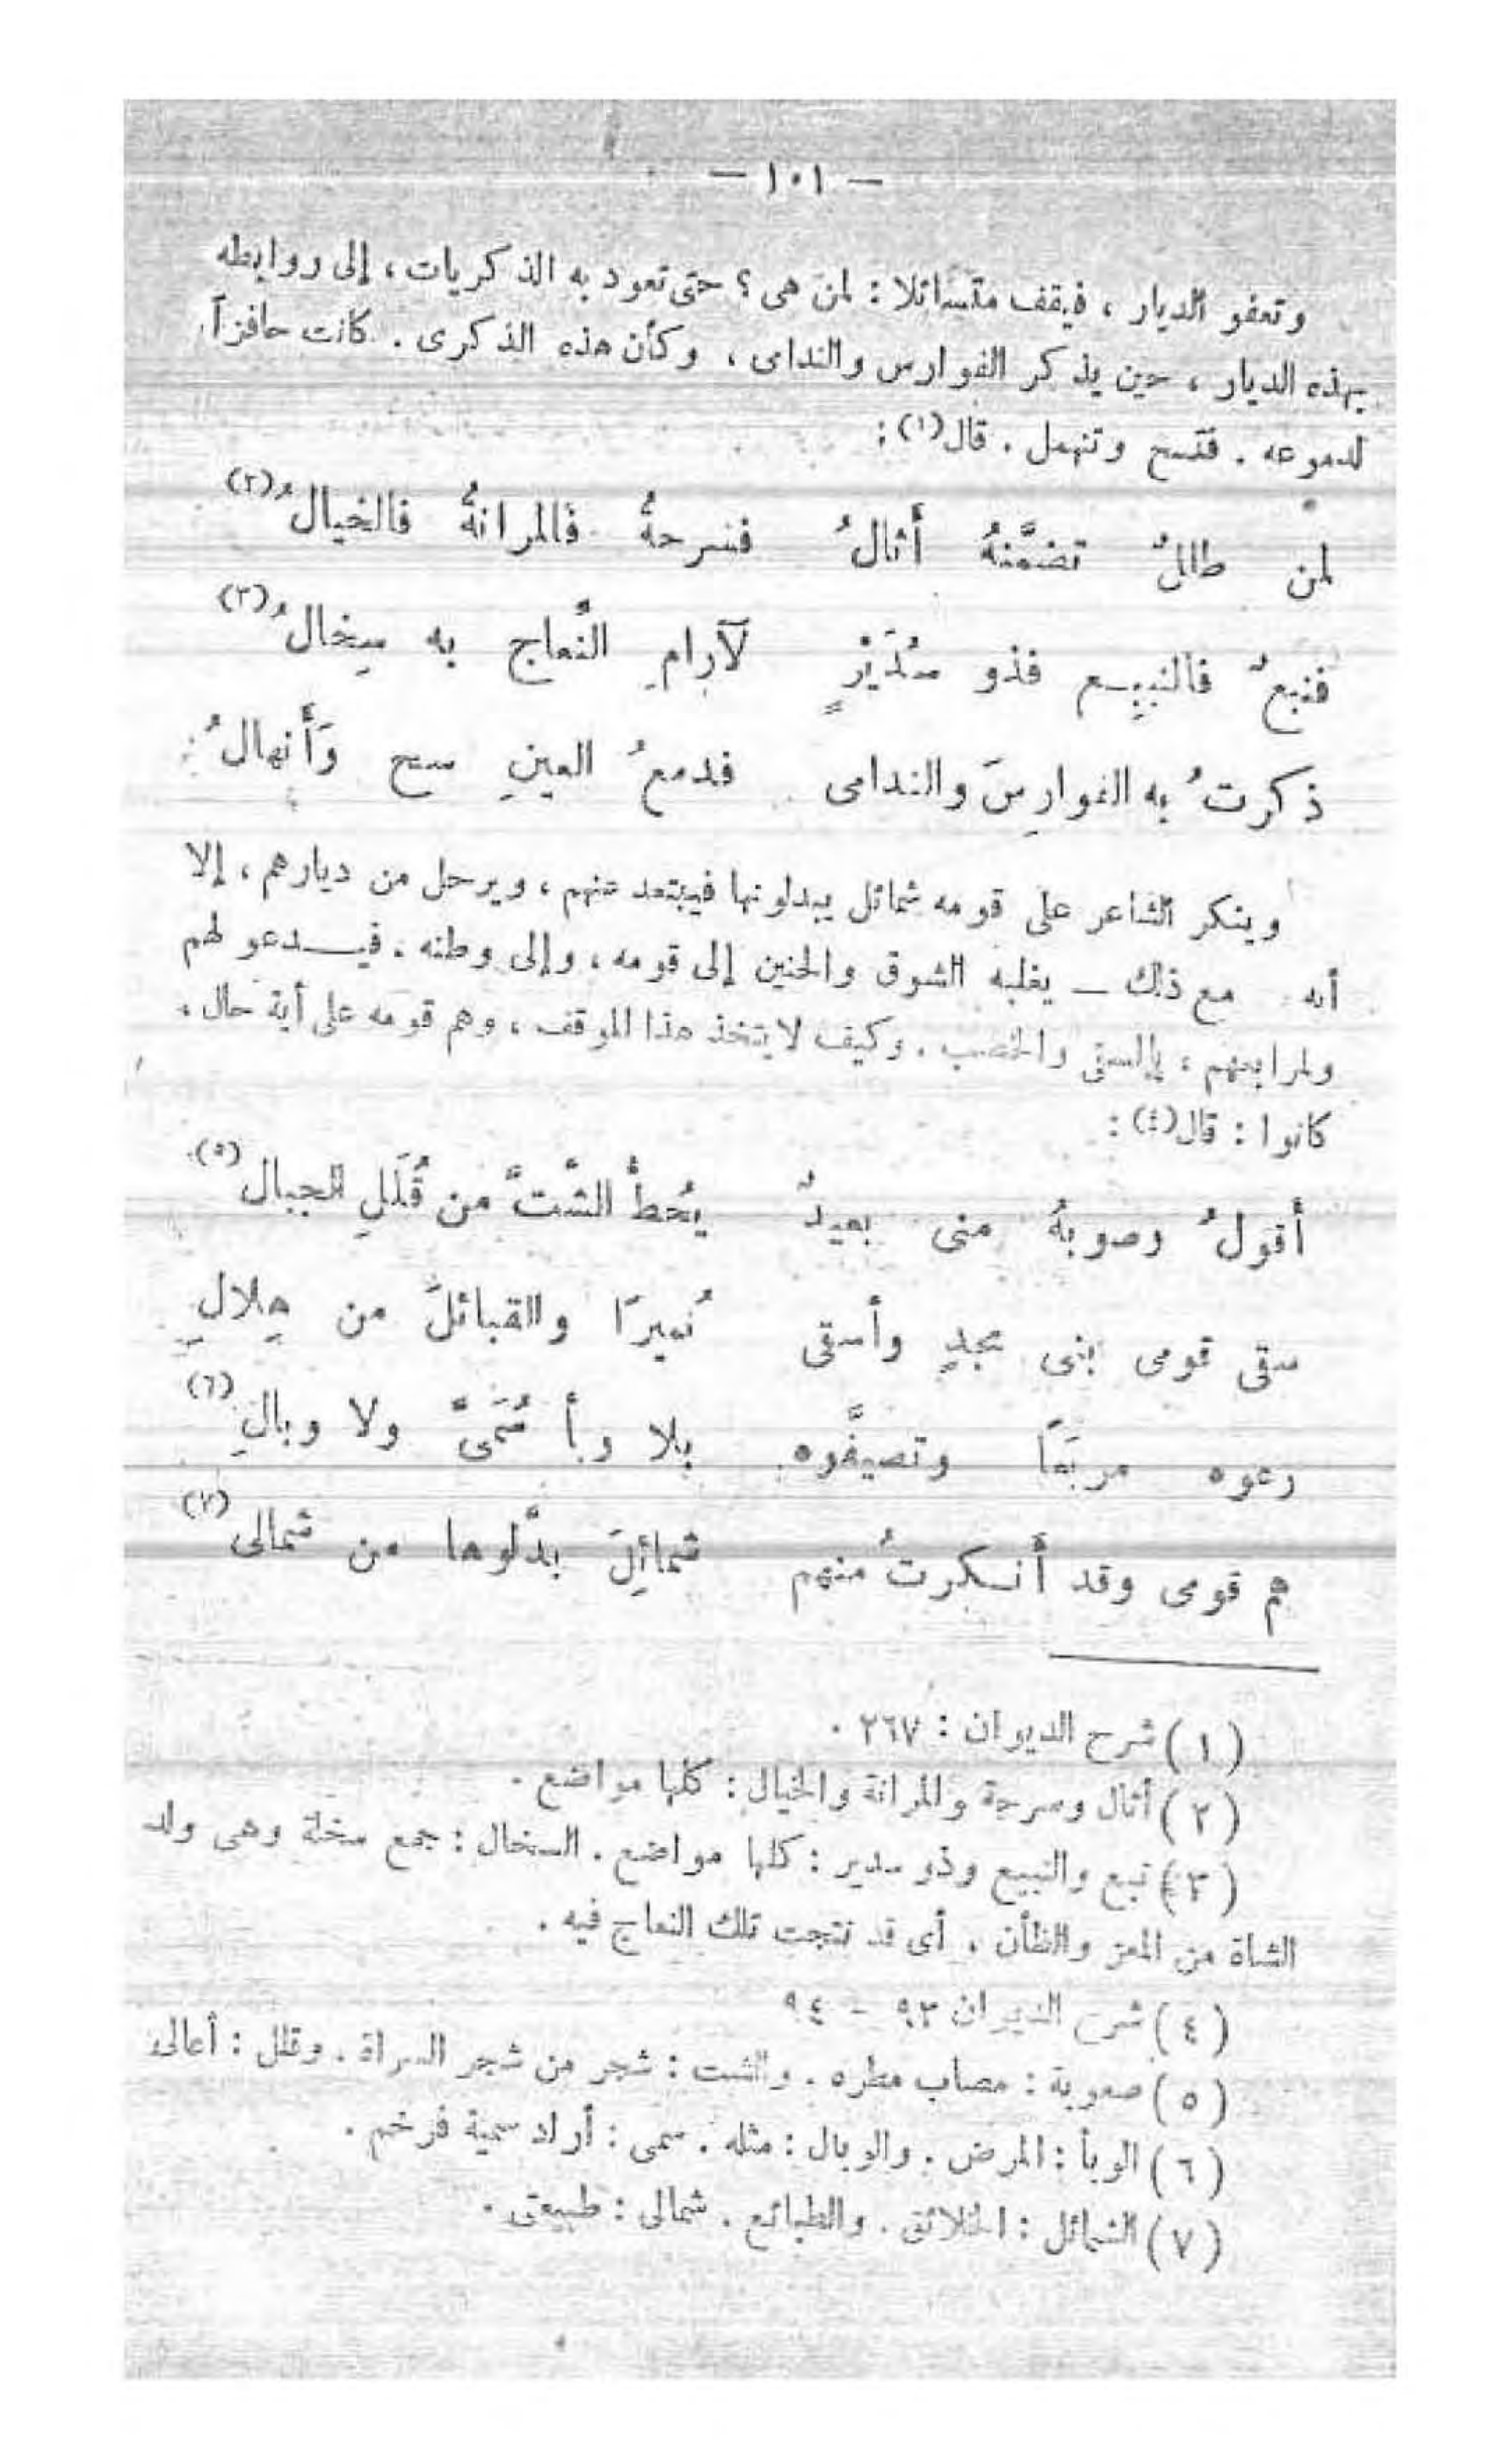 — ١٠١ —
وتعفو الديار ، فيقف متسائلا : لمن هى ؟ حتى تعود به الذكريات ، إلى روابطه
بهذه الديار ، حين يذكر الفوارس والندامى ، وكأن هذه الذكرى . كانت حافزاً
لدموعه . فتسح وتنهمل . قال(١) :
لمن طللٌ تضمَّنهُ أثالُ فسرحةُ فالمرانةُ فالخيالُ(٢)
فنبعٌ فالنبيع فذو سُدَيْرٍ لآرامِ النَّعاج به سِخالُ(٣)
ذكرتُ به الفوارِسَ والندامى فدمعُ العينِ سح وَأَنهالُ
وينكر الشاعر على قومه شمائل يبدلونها فيبتعد عنهم ، ويرحل من ديارهم ، إلا
أنه مع ذلك – يغلبه الشوق والحنين إلى قومه ، وإلى وطنه . فيدعو لهم
ولمرابعهم ، بالسقى والخصب . وكيف لا يتخذ هذا الموقف ، وهم قومه على أية حال ،
كانوا : قال(٤) :
أقولُ وصوبهُ منى بعيدٌ يُحطُّ الشَّتَّ من قُلَلِ الجبال(٥)
سقى قومى بنى مجدٍ وأسقى نُميرًا والقبائلَ من هِلالِ
رعوه مربَعًا وتصيفَّوه بلا وبأ سُمَىَّ ولا وبالِ(٦)
هم قومى وقد أنكرتُ منهم شمائِلَ بدَّلوها من شمالى(٧)
(١) شرح الديوان : ٢٦٧ .
(٢) أثال وسرحة والمرانة والخيال : كلها مواضع .
(٣) نبع والنبيع وذو سدير : كلها مواضع . السخال : جمع سخلة وهى ولد
الشاة من المعز والظأن . أى قد نتجت تلك النعاج فيه .
(٤) شرح الديوان ٩٣ – ٩٤
(٥) صعوبة : مصاب مطره . والشت : شجر من شجر السراة . وقلل : أعالى
(٦) الوبأ : المرض . والوبال : مثله . سمى : أراد سمية فرخم .
(٧) الشمائل : الخلائق . والطبائع . شمالى : طبيعتى .